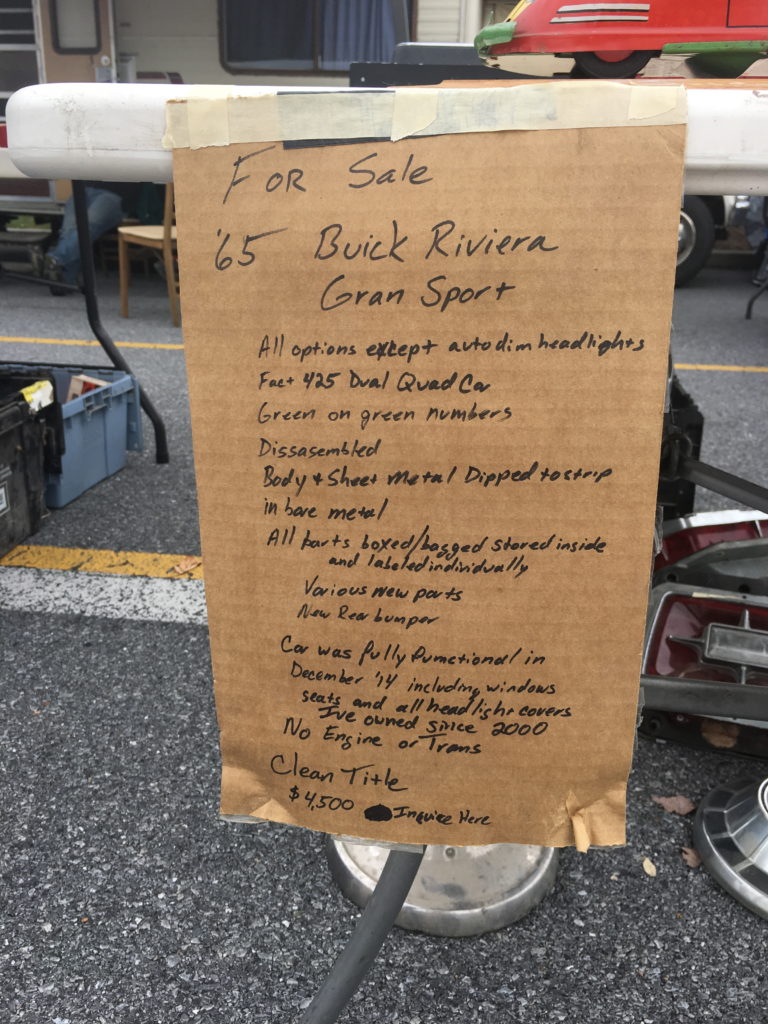 For Sale
'65 Buick Riviera
Gran Sport
All options except auto dim headlights
Fact 425 Dual Quad Car
Green on green numbers
Dissasembled
Body + Sheet metal Dipped to strip
in bare metal
All parts boxed/bagged stored inside
and labeled individually
Various new parts
New Rear bumper
Car was fully functional in
December '14 including windows
seats and all headlight covers
I've owned since 2000
No Engine or Trans
Clean Title
$4,500 Inquire Here